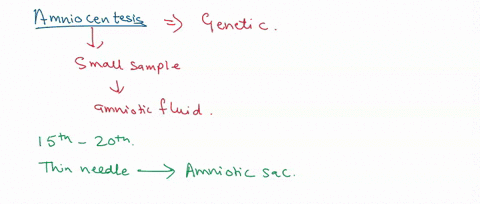 Amniocentesis ⇒ Genetic.
Small sample
amniotic fluid.
15th - 20th.
Thin needle → Amniotic sac.